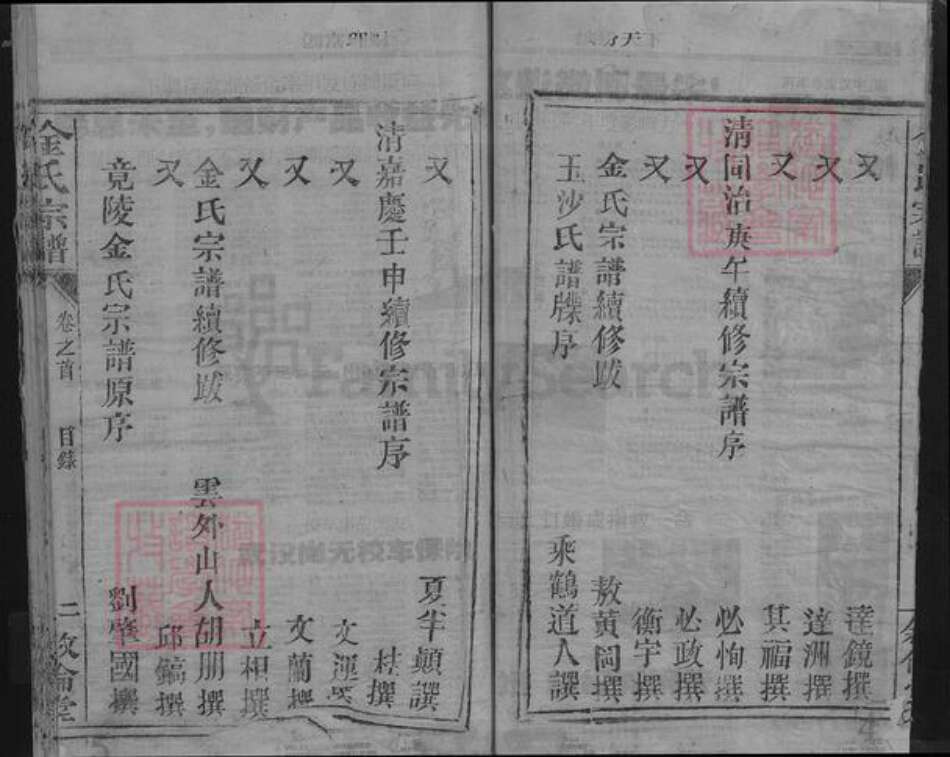 又 達鏡撰
又 達洲撰
又 其福撰
清同治庚午續修宗譜序 必恂撰
又 必政撰
又 衡宇撰
金氏宗譜續修跋 敖黃岡撰
玉沙氏譜牒序 乘鶴道人譔
又 夏半頠譔
清嘉慶壬申續修宗譜序 桂撰
又 文運撰
又 文蘭撰
又 立相撰
金氏宗譜續修跋 雲外山人胡朋撰
又 邱鎬撰
竟陵金氏宗譜原序 劉肇國撰
金氏宗譜 卷之首 目錄 二 敦倫堂
FamilySearch